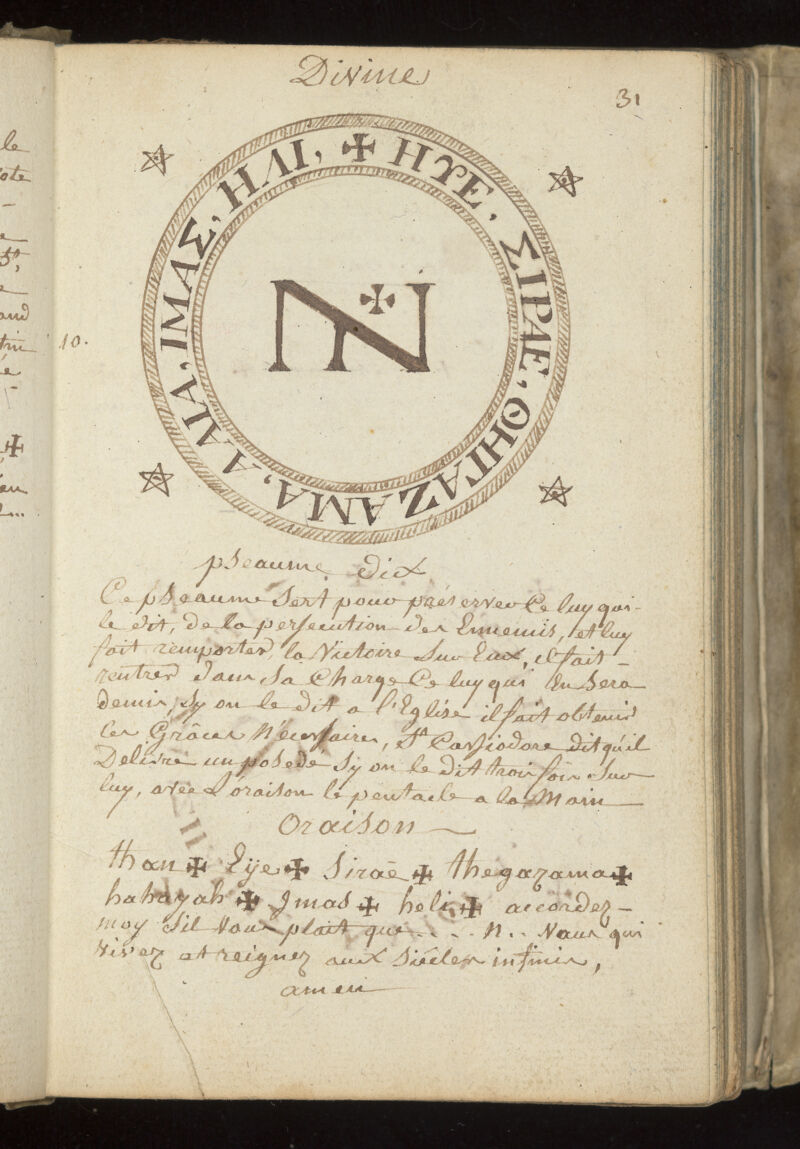 Divine
31
✠ ΗΥΕ, ΣΙΡΑΕ, ΘΗΓΑΖΑΜΑ, ΑΛΙΑ, ΙΜΑΣ, ΗΛΙ,
10.
pseaume dix
Ce pseaume sert pour préserver Celuy qui-
le dit, de la persecution des Ennemis, et luy
fait remporter la Victoire sur Eux, il fait-
rentrer dans sa Charge Celuy qui En sera
demis, sy on le dit a l'Eglise il fait obtenir
les Grâces Nécessaires, St Cassiodore dit qu'il
Delivre un posedé sy on le dit trois fois sur
luy, avec L'oraison le pentacle a la Main
Oraison
than ✠ Eije ✠ Siraë ✠ thegazama ✠
hahayah ✠ Jmas ✠ heli ✠ accordez-
moy s'il vous plait que . . . . N. . Vous qui
vivez et reignez aux siécles infinis,
amen
le
and